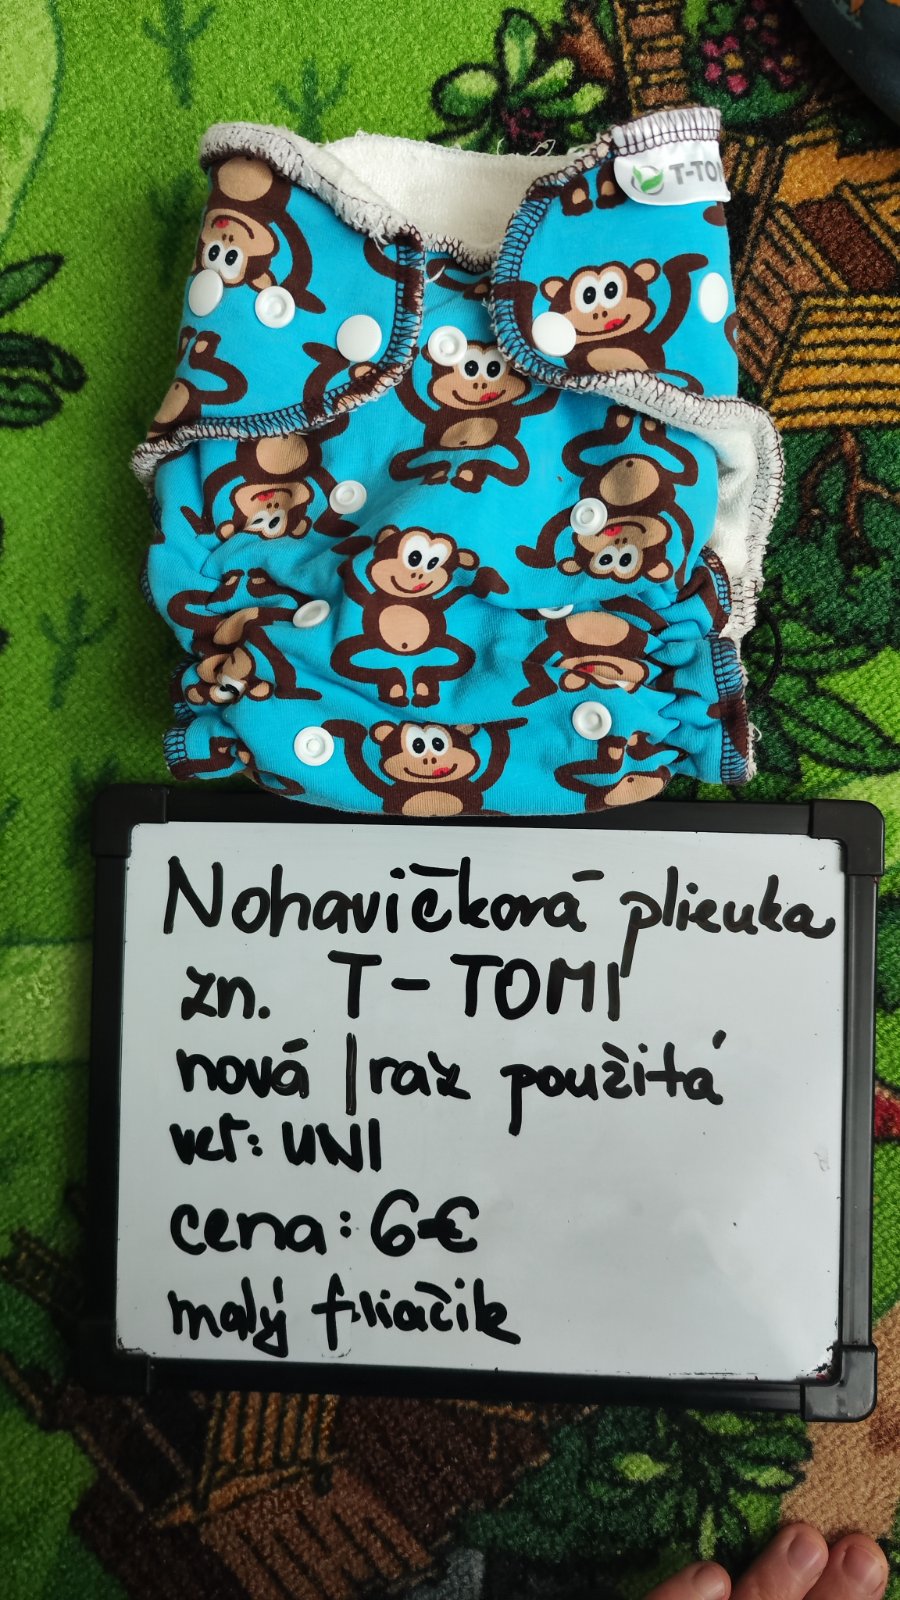 T-TOM
Nohavičková plienka
zn. T-TOMI
nová 1raz použitá
veľ: UNI
cena: 6€
malý fliačik